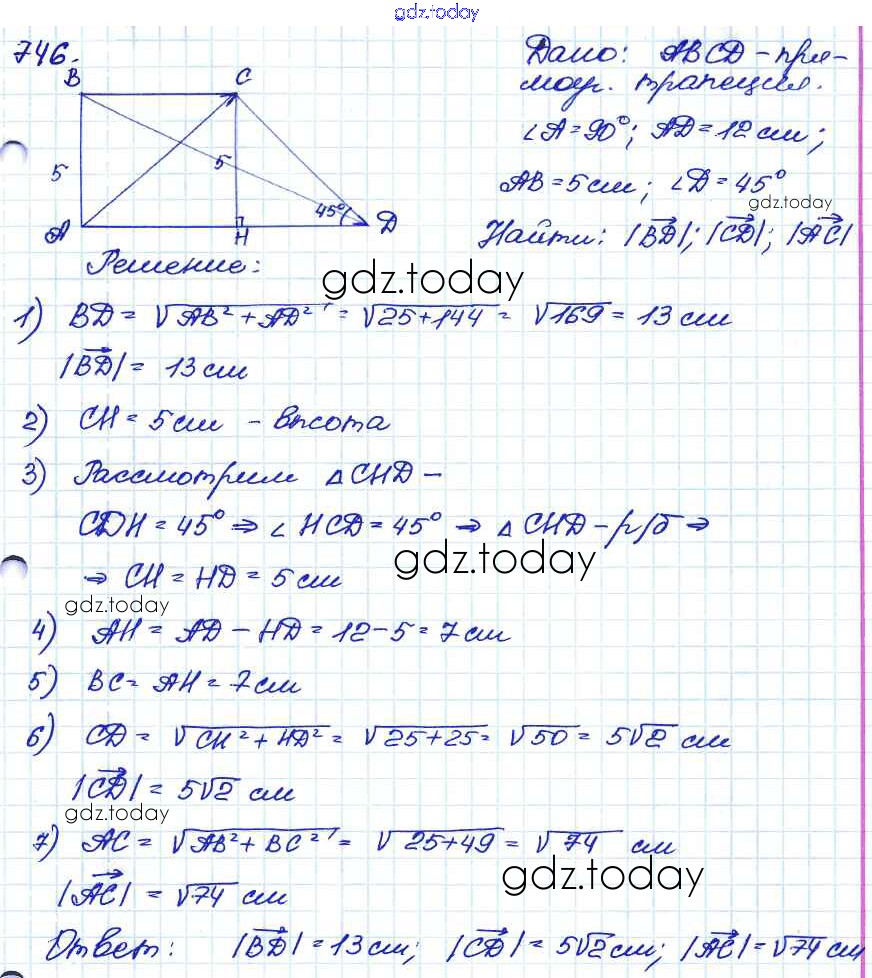 gdz.today
746.
B
C
5
5
45°
A
H
D
Дано: ABCD – пря-
моуг. трапеция.
∠A = 90°; AD = 12 см;
AB = 5 см; ∠D = 45°
gdz.today
Найти: |BD|; |CD|; |AC|
Решение:
gdz.today
1) BD = √AB² + AD² = √25 + 144 = √169 = 13 см
|BD| = 13 см
2) CH = 5 см – высота
3) Рассмотрим △CHD –
CDH = 45° ⇒ ∠HCD = 45° ⇒ △CHD – р/б ⇒
gdz.today
⇒ CH = HD = 5 см
gdz.today
4) AH = AD – HD = 12 – 5 = 7 см
5) BC = AH = 7 см
6) CD = √CH² + HD² = √25 + 25 = √50 = 5√2 см
|CD| = 5√2 см
gdz.today
7) AC = √AB² + BC² = √25 + 49 = √74 см
gdz.today
|AC| = √74 см
Ответ: |BD| = 13 см; |CD| = 5√2 см; |AC| = √74 см